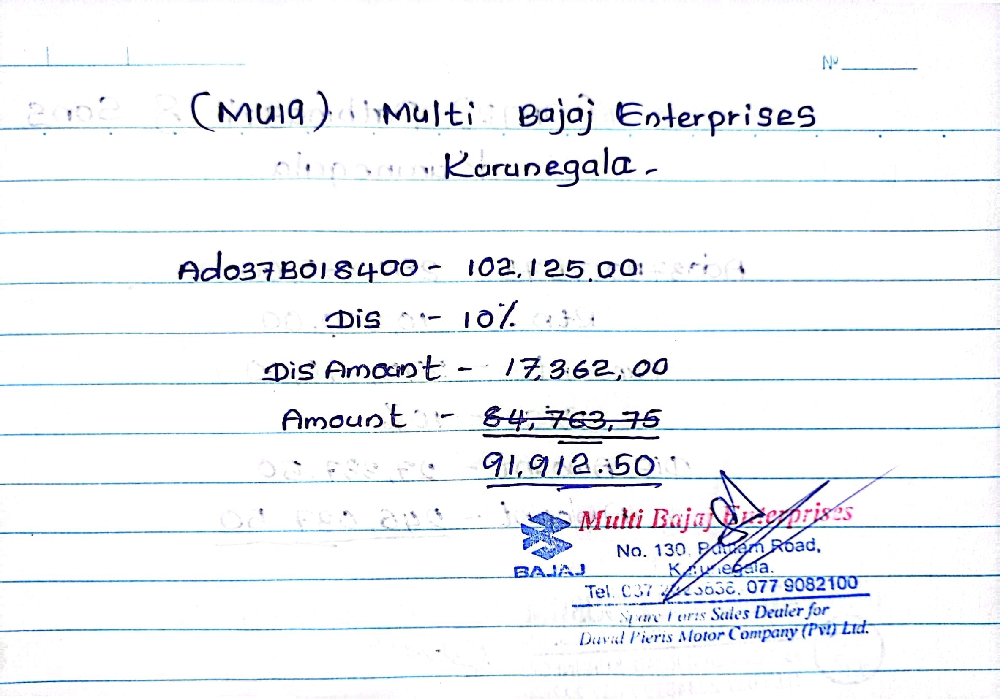 Nº
(MU19) Multi Bajaj Enterprises
Kurunegala -
Ad037B018400 - 102,125.00
Dis - 10%
Dis Amount - 17,362,00
Amount - 84,763,75
91,912.50
Multi Bajaj Enterprises
No. 130, Puttalam Road,
BAJAJ
Kurunegala.
Tel. 037 077 9082100
Spare Parts Sales Dealer for
David Pieris Motor Company (Pvt) Ltd.